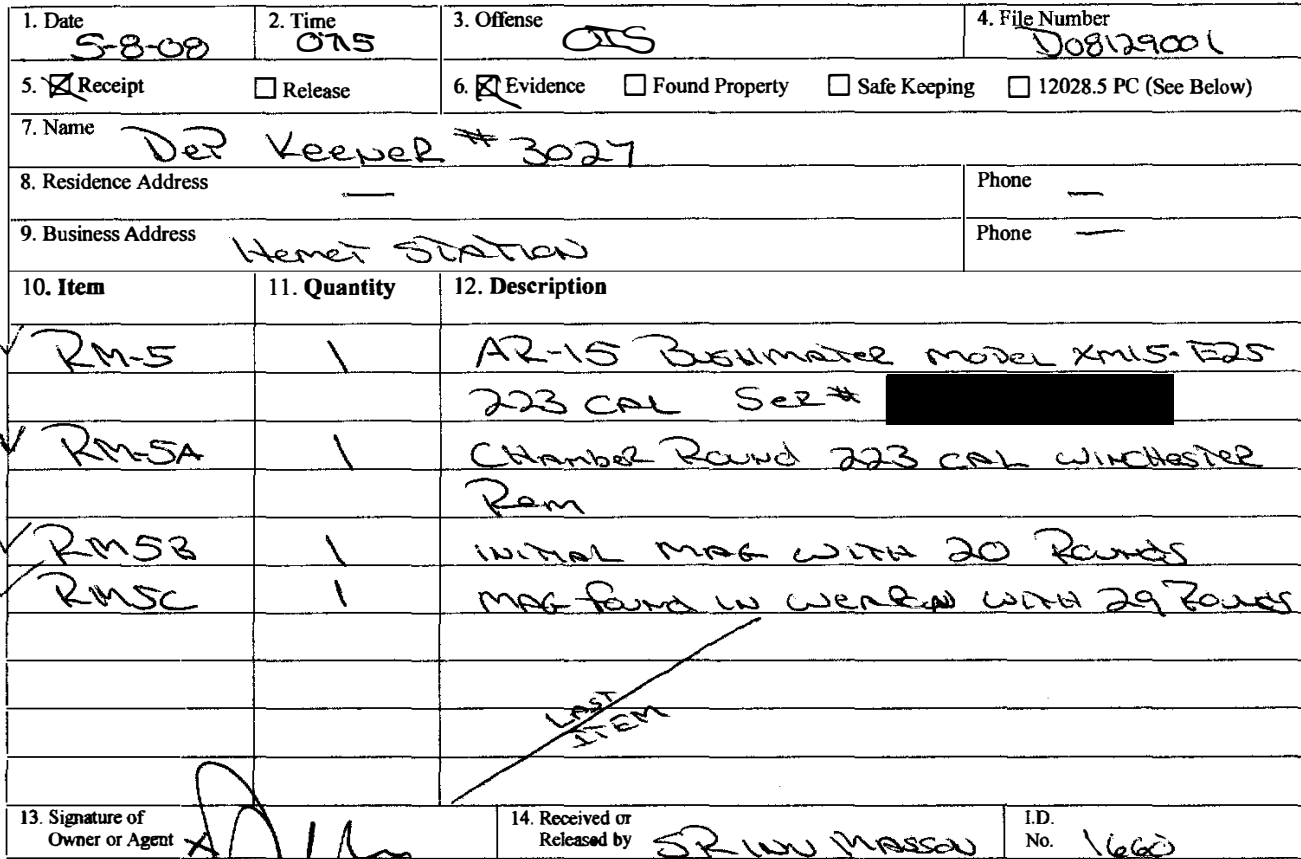 1. Date 2. Time 3. Offense 4. File Number
5-8-08 0715 OIS D08129001
5. Receipt Release 6. Evidence Found Property Safe Keeping 12028.5 PC (See Below)
7. Name DEP KEENER # 3027
8. Residence Address — Phone —
9. Business Address HEMET STATION Phone —
10. Item 11. Quantity 12. Description
RM-5 1 AR-15 BUSHMATER MODEL XM15-E25
223 CAL SER#
RM-5A 1 CHAMBER ROUND 223 CAL WINCHESTER
REM
RM5B 1 INITIAL MAG WITH 20 ROUNDS
RM5C 1 MAG FOUND IN WEAPON WITH 29 ROUNDS
LAST
ITEM
13. Signature of 14. Received or I.D.
Owner or Agent X Released by SR INV MASSON No. 1660